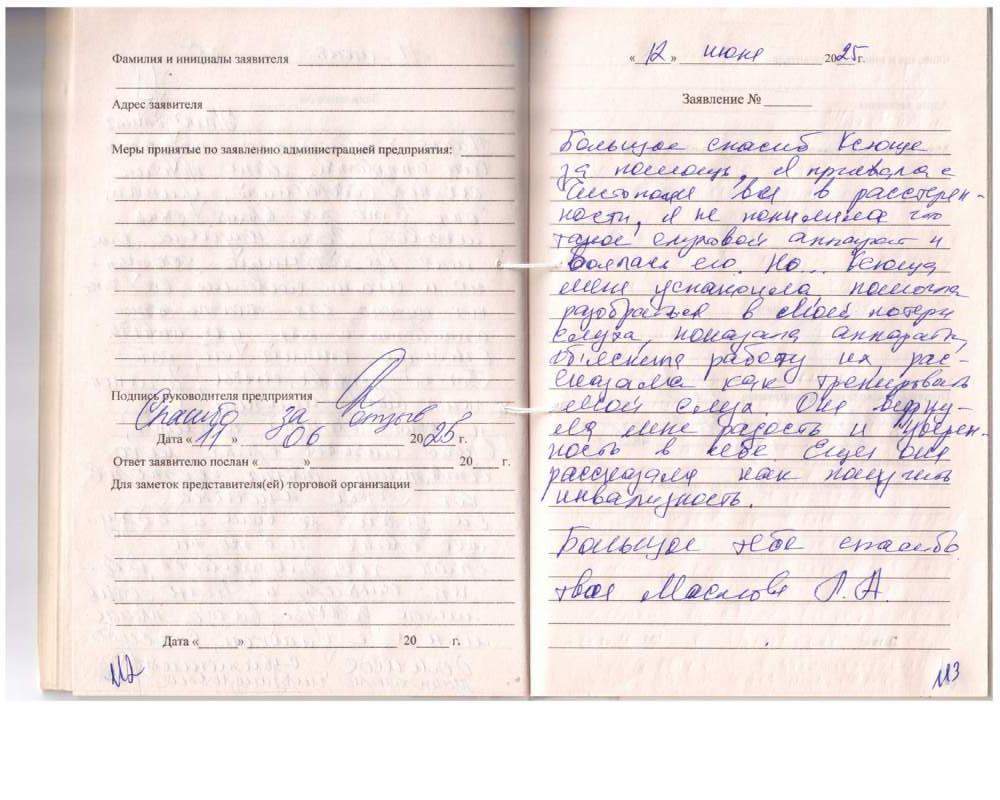 Фамилия и инициалы заявителя
Адрес заявителя
Меры принятые по заявлению администрацией предприятия:
Подпись руководителя предприятия
Спасибо за отзыв
Дата « 11 » 06 2025 г.
Ответ заявителю послан « » 20 г.
Для заметок представителя(ей) торговой организации
Дата « » 20 г.
112
« 12 » июня 2025г.
Заявление №
Большое спасиб Ксюше
за помощь, я приехала с
Чистополя вся в растерен-
ности, я не понимала что
такое слуховой аппарат и
боялась его. Но... Ксюша
меня успакоила помогла
разобраться в моей потери
слуха, показала аппараты,
объяснила работу их, рас-
сказала как тренировать
мой слух. Она верну-
ла мне радость и уверен-
ность в себе. Еще она
рассказала как получить
инвалидность.
Большое тебе спасибо
твоя Маслова Л.А.
113